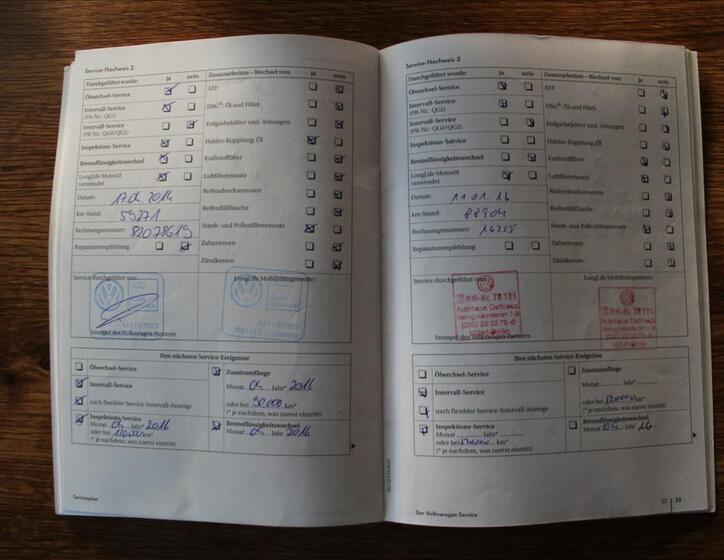 Service-Nachweis 2
Durchgeführt wurde: ja nein
Ölwechsel-Service
Intervall-Service
(PR-Nr.: QG1)
Intervall-Service
(PR-Nr.: QG0/QG2)
Inspektions-Service
Bremsflüssigkeitswechsel
LongLife Motoröl
verwendet
Datum:
km-Stand: 59271
Rechnungsnummer:
Reparaturempfehlung
Zusatzarbeiten – Wechsel von: ja nein
ATF
DSG®: Öl und Filter
Erdgasbehälter und -leitungen
Haldex-Kupplung: Öl
Kraftstofffilter
Luftfiltereinsatz
Reifendrucksensoren
Reifenfüllflasche
Staub- und Pollenfiltereinsatz
Zahnriemen
Zündkerzen
Service durchgeführt von:
LongLife Mobilitätsgarantie:
Stempel des Volkswagen Partners
Ihre nächsten Service-Ereignisse
Ölwechsel-Service
Intervall-Service
nach flexibler Service-Intervall-Anzeige
Inspektions-Service
Monat 04 Jahr* 2016
oder bei km*
(* je nachdem, was zuerst eintritt)
Zusatzumfänge
Monat 04 Jahr* 2016
oder bei 90.000 km*
(* je nachdem, was zuerst eintritt)
Bremsflüssigkeitswechsel
Monat 04 Jahr 2016
Serviceplan
Service-Nachweis 3
Durchgeführt wurde: ja nein
Ölwechsel-Service
Intervall-Service
(PR-Nr.: QG1)
Intervall-Service
(PR-Nr.: QG0/QG2)
Inspektions-Service
Bremsflüssigkeitswechsel
LongLife Motoröl
verwendet
Datum: 11.01.16
km-Stand: 88904
Rechnungsnummer: 16255
Reparaturempfehlung
Zusatzarbeiten – Wechsel von: ja nein
ATF
DSG®: Öl und Filter
Erdgasbehälter und -leitungen
Haldex-Kupplung: Öl
Kraftstofffilter
Luftfiltereinsatz
Reifendrucksensoren
Reifenfüllflasche
Staub- und Pollenfiltereinsatz
Zahnriemen
Zündkerzen
Service durchgeführt von:
LongLife Mobilitätsgarantie:
Autohaus
Stempel des Volkswagen Partners
Ihre nächsten Service-Ereignisse
Ölwechsel-Service
Intervall-Service
nach flexibler Service-Intervall-Anzeige
Inspektions-Service
Monat Jahr*
oder bei km*
(* je nachdem, was zuerst eintritt)
Zusatzumfänge
Monat Jahr*
oder bei km*
(* je nachdem, was zuerst eintritt)
Bremsflüssigkeitswechsel
Monat 04 Jahr 16
Der Volkswagen Service
32 33